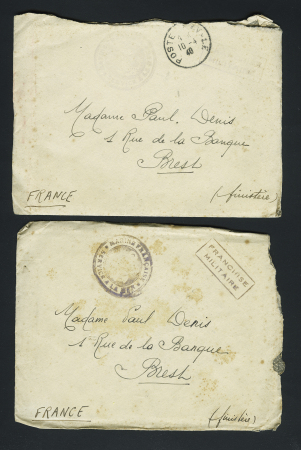 POSTE NAVALE
10-4
40
Madame Paul Denis
1 Rue de la Banque
Brest
FRANCE
(finistère)
MARINE FRANÇAISE
FRANCHISE
MILITAIRE
Madame Paul Denis
1 Rue de la Banque
Brest
FRANCE
(finistère)